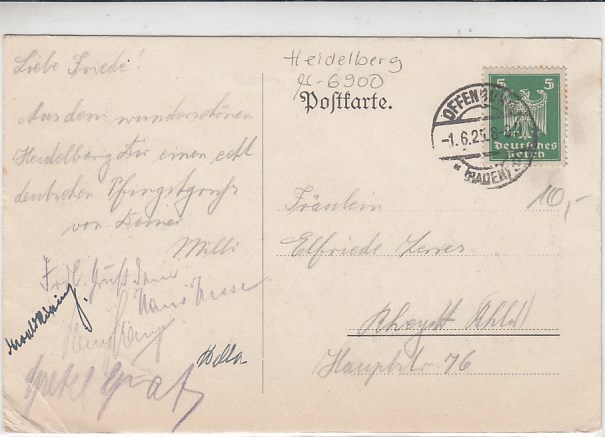 Liebe Friede!
Aus dem wunderschönen
Heidelberg Dir einen echt
deutschen Pfingstgruß
von Deiner
Milli
Frdl. Gruß
Hans
Hella
Gretel Graf
Heidelberg
4-6900
Postkarte.
5 5
Deutsches
Reich
OFFENBURG
-1.6.25.8-
(BADEN)
10,-
Fräulein
Elfriede
Rheydt Rhld
Hauptstr. 76